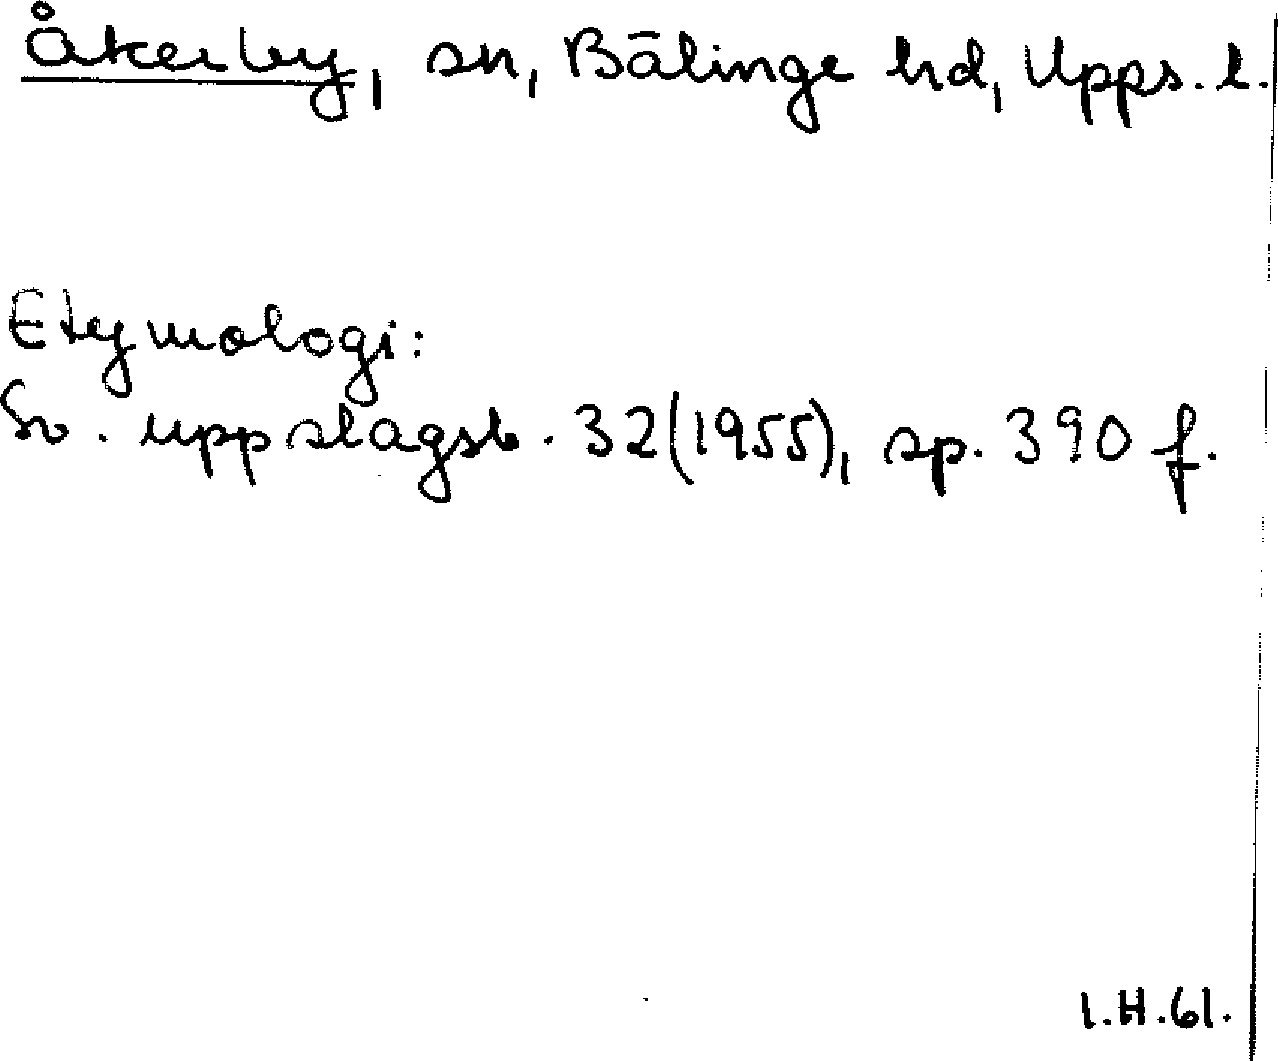 Åkerby, sn, Bälinge hd, Upps. l.
Etymologi:
Sv. uppslagsb. 32(1955), sp. 390 f.
I.H.61.